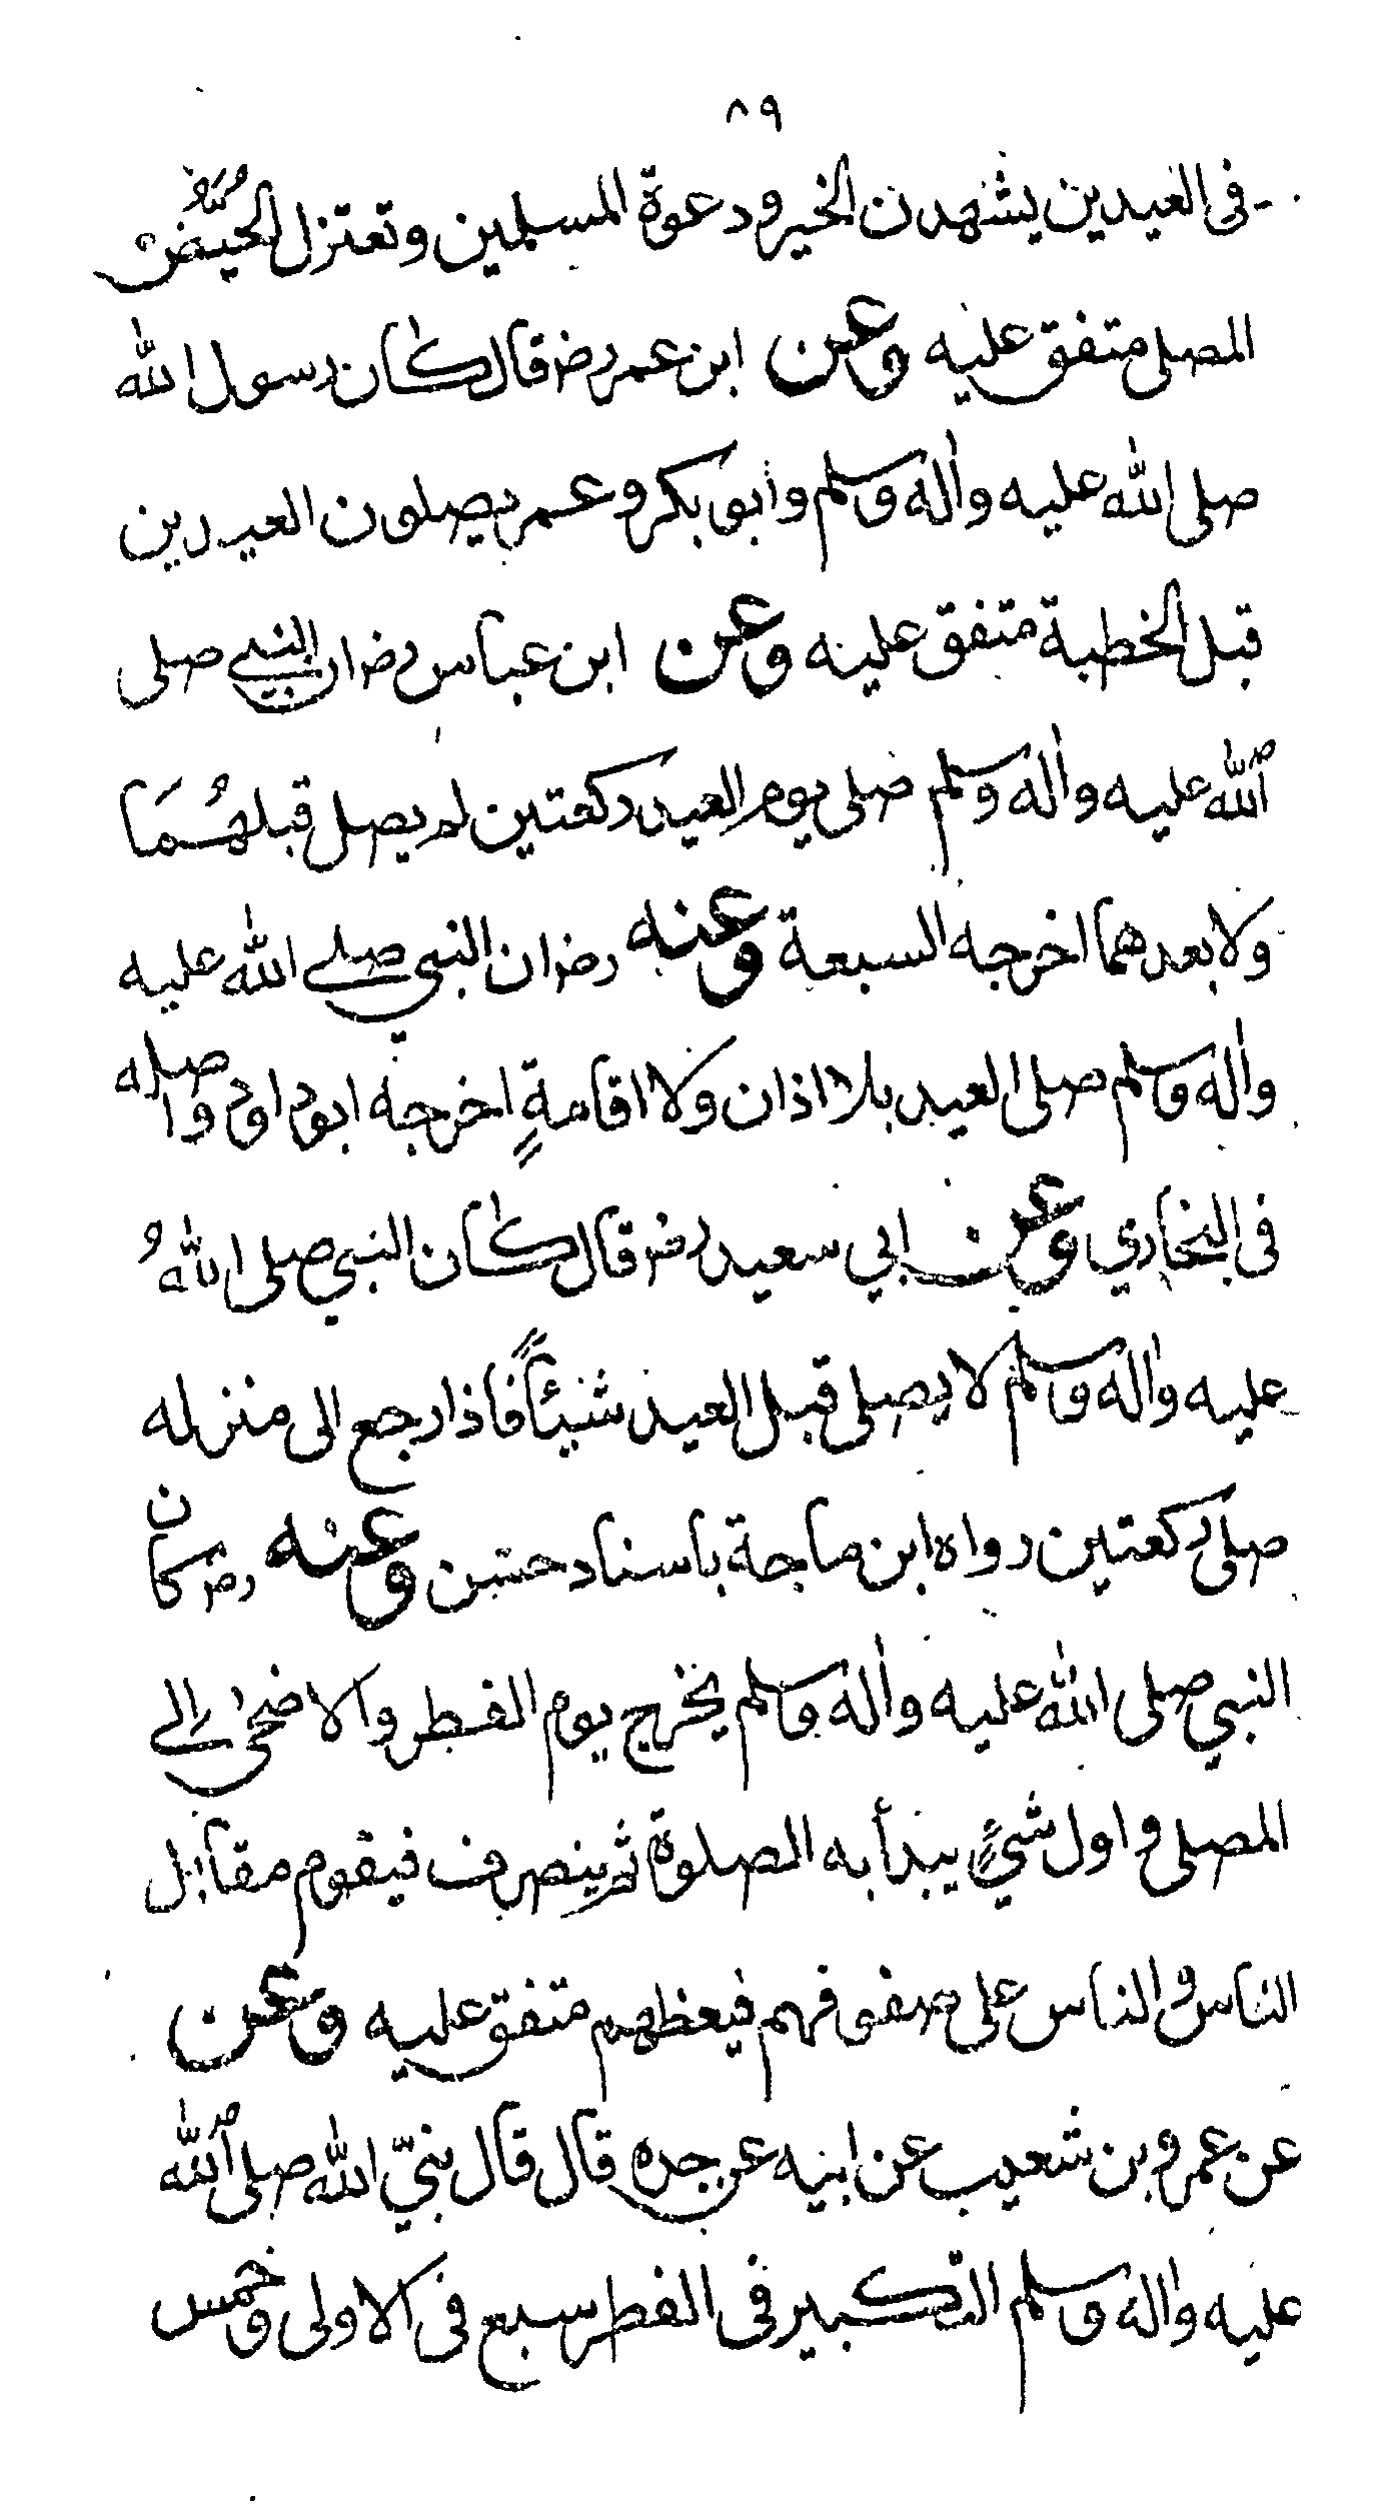 ٨٩
فى العيدين يشهدن الخير ودعوة المسلمين وتعتزل الحُيَّضُ
المصلى متفق عليه وعن ابن عمر رضـ قال كان رسول الله
صلى الله عليه واٰله وسلم وابو بكر وعمر يصلون العيدين
قبل الخطبة متفق عليه وعن ابن عباس رضـ ان النبي صلى
الله عليه واٰله وسلم صلى يوم العيد ركعتين لم يصل قبلهُمَا
ولا بعدهما اخرجه السبعة وعنه رضـ ان النبي صلے الله عليه
واٰله وسلم صلى العيد بلا اذان ولا اقامةٍ اخرجه ابوداود واصله
فى البخاري وعن ابي سعيد رضـ قال كان النبي صلى اللهُ
عليه واٰله وسلم لا يصلى قبل العيد شيئاً فاذا رجع الى منزله
صلى ركعتين رواه ابن ماجة باسناد حسن وعنه رضـ كان
النبي صلى الله عليه واٰله وسلم يخرج يوم الفطر والاضحىٰ الے
المصلى واول شيءٍ يبدأ به الصلوة ثم ينصرف فيقوم مقابل
الناس والناس على صفوفهم فيعظهم متفق عليه وعن
عن عمرو بن شعيب عن ابيه عن جده قال قال نبيّ الله صلى الله
عليه واٰله وسلم التكبير فى الفطر سبع فى الاولى وخمس